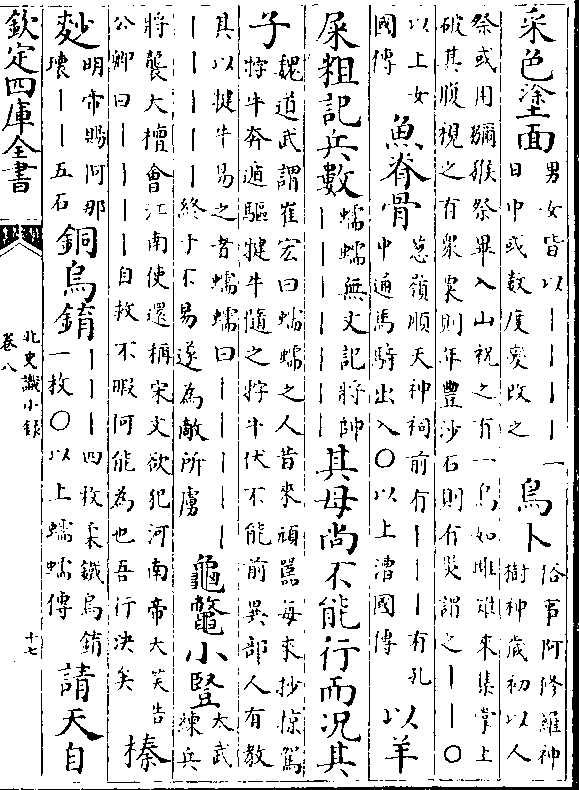 采色塗面 男女皆以丨丨丨丨一
日中或數度變改之 鳥卜 俗事阿修羅神
樹神歲初以人
祭或用獼猴祭畢入山祝之有一鳥如雌雉來集掌上
破其腹視之有衆粟則年豐沙石則有災謂之丨丨〇
以上女
國傳 魚脊骨 葱嶺順天神祠前有丨丨丨有孔
中通馬騎出入〇以上漕國傳 以羊
屎粗記兵數 蠕蠕無文記將帥
丨丨丨丨丨丨 其母尚不能行而況其
子 魏道武謂崔宏曰蠕蠕之人昔來頑嚚每來抄掠駕
牸牛奔遁驅犍牛隨之牸牛伏不能前異部人有教
其以犍牛易之者蠕蠕曰丨丨丨丨丨
丨丨丨丨丨終于不易遂為敵所虜 龜鼈小豎 太武
練兵
將襲大檀會江南使還稱宋文欲犯河南帝大笑告
公卿曰丨丨丨丨自救不暇何能為也吾行決矣 榛
麨 明帝賜阿那
瓌丨丨五石 銅烏錥 丨丨丨四枚柔鐵烏錥
一枚〇以上蠕蠕傳 請天自
欽定四庫全書
北史識小録
卷八
十七